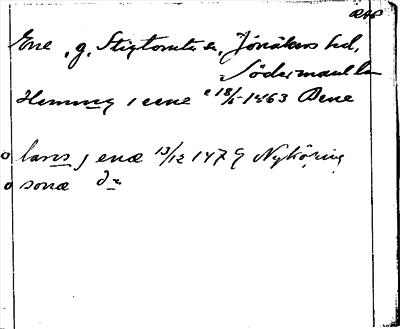 RAP
Ene, g. Stigtomta sn, Jönåkers hd,
Södermanl. län
Hemming i eene 18/5 1463 Bene
lawris j enæ 13/12 1479 Nyköping
sonæ do